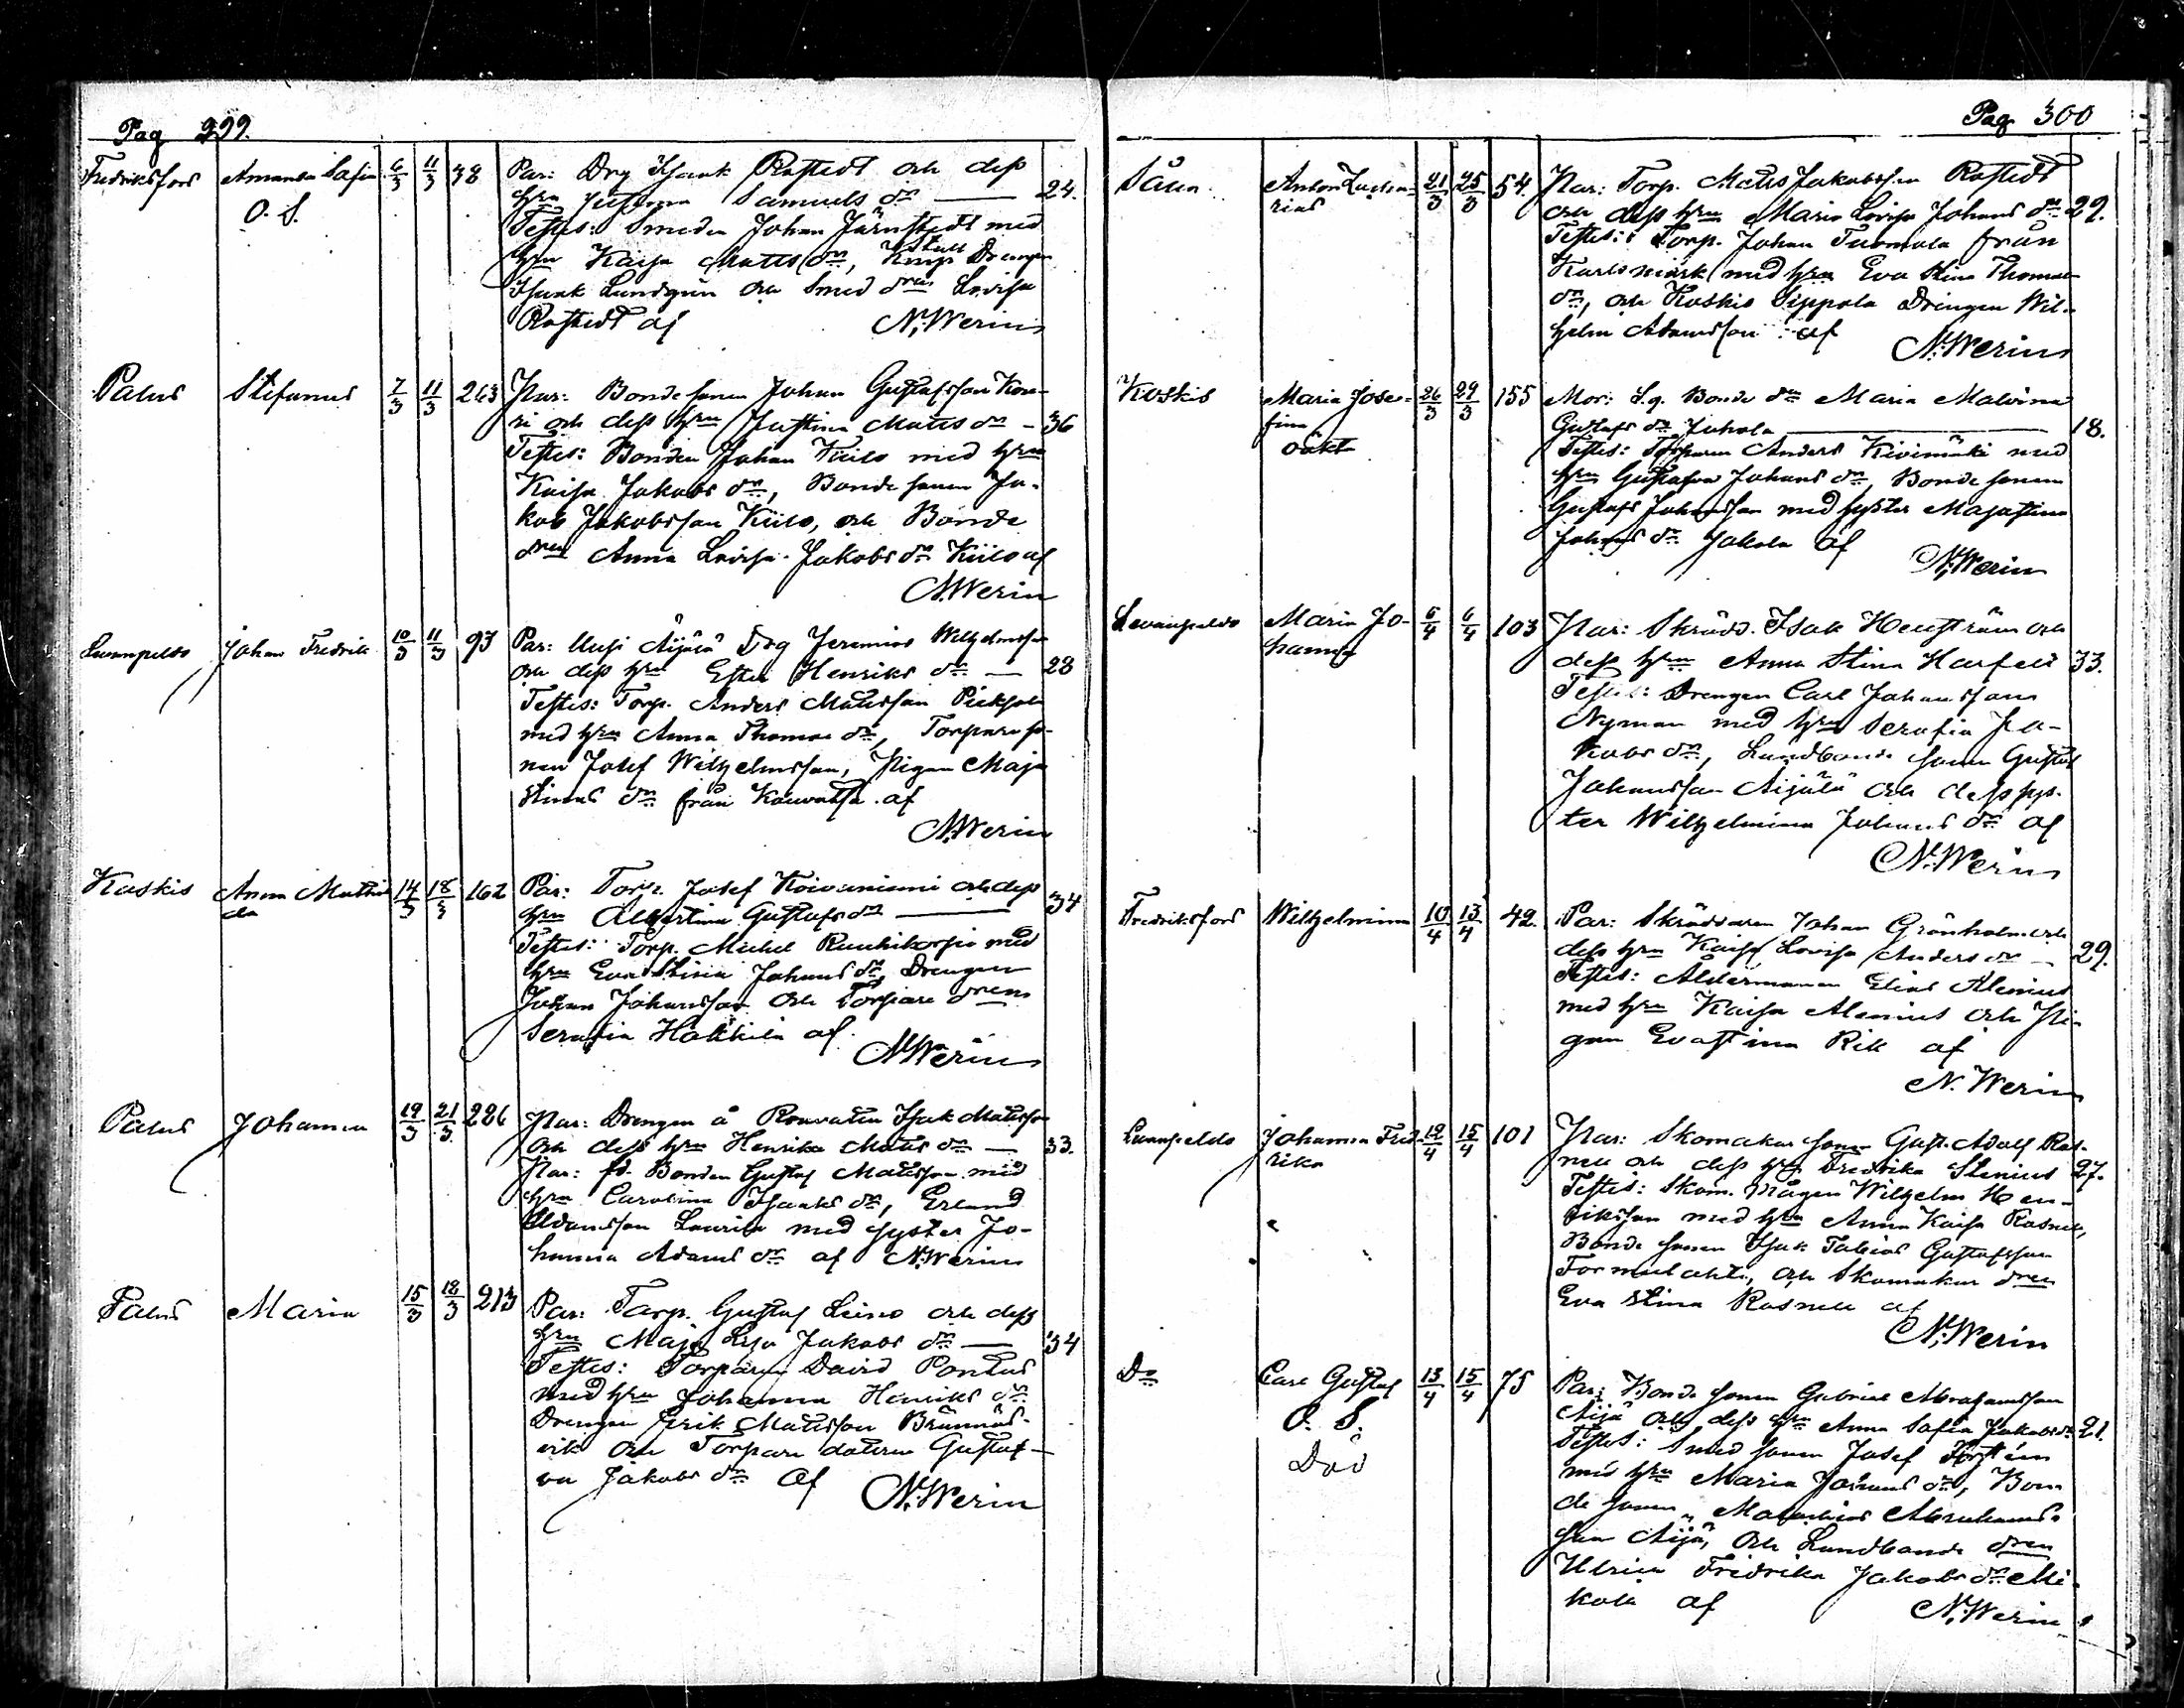 Pag 299.
Fredriksfors Amanda Safia 6/3 11/3 38 Par: Drg Isaak Rostedt och dess
O. S. hru Samuels dr — 24.
Testes: Smeden Johan Järnstedt med
hru Kaisa Matts dr, Drengen
Isaak Lundgrén och Smed dren Lovisa
Rostedt af N. Werin
Palus Stefanus 7/3 11/3 263 Par: Bonde sonen Johan Gustafsson Kou-
ri och dess hru Justina Matts dr — 36
Testes: Bonden Johan Kiilo med hru
Kaisa Jakobs dr, Bonde sonen Ja-
kob Jakobsson Kiilo, och Bonde
dren Anna Lovisa Jakobs dr Kiilo af
N. Werin
Levanpelds Johan Fredrik 10/3 11/3 93 Par: Uusi Äijälä Drg Jeremias Wilhelmsson
och dess hru Ester Henriks dr — 28
Testes: Torp. Anders Matsson
med hru Anna Thomas dr, Torpare so-
nen Josef Wilhelmsson, Pigan Maja
Stina dr från af
N. Werin
Koskis Anna Mathil 14/3 18/3 162 Par: Torp. Josef Koivuniemi och dess
da hru Albertina Gustafs dr — 34
Testes: Torp. Mickel Ruuhikorpi med
hru Eva Stina Johans dr, Drengen
Johan Johansson och Torpare dren
Serafia Hakkila af
N. Werin
Palus Johanna 19/3 21/3 286 Par: Drengen å Isak Matsson
och dess hru Henrika Matts dr — 33.
Par: fd. Bonden Gustaf Matsson med
hru Carolina Isaaks dr, Erland
Adamsson Laurila med syster Jo-
hanna Adams dr af N. Werin
Palus Maria 15/3 18/3 213 Par: Torp. Gustaf Leino och dess
hru Maja Lisa Jakobs dr — 34
Testes: Torparen David Pontus
med hru Johanna Henriks dr
Drengen Erik Matsson Brännäs-
vik och Torpare dotern Gustaf-
va Jakobs dr af N. Werin
Pag 300
Såun Anton Zacha- 21/3 25/3 54. Par: Torp. Matts Jakobsson Rostedt
rias och dess hru Maria Lovisa Johans dr 29.
Testes: Torp. Johan Tuomola från
Karlsmark med hru Eva Stina Thomas
dr, och Koskis Sippola Drengen Wil-
helm Adamsson af
N. Werin
Koskis Maria Jose- 26/3 29/3 155 Mor: L.g. Bonde dr Maria Malvina
fina Gustafs dr Juhola — 18.
oäkt Testes: Torparen Anders Kivimäki med
hru Gustafva Johans dr, Bonde sonen
Gustaf Johansson med syster Majastina
Johans dr Jokela af
N. Werin
Levanpelds Maria Jo- 5/4 6/4 103 Par: Skrädd. Isak och
hanna dess hru Anna Stina 33.
Testes: Drengen Carl Johansson
Nyman med hru Serafia Ja-
kobs dr, Landbonde sonen Gustaf
Johansson Äijälä och dess sys-
ter Wilhelmina Johans dr af
N. Werin
Fredriksfors Wilhelmina 10/4 13/4 42. Par: Skräddaren Johan Grönholm och
dess hru Kaisa Lovisa Anders dr — 29.
Testes: Åldermannen Elias Alenius
med hru Kaisa Alenius och Pi-
gan Evastina Rik af
N. Werin
Levanpelds Johanna Fred- 12/4 15/4 101 Par: Skomakar sonen Gust. Adolf Ros-
rika nell och dess hru Fredrika Stenius 27.
Testes: Skom. mågen Wilhelm Hen-
riksson med hru Anna Kaisa Rosnell,
Bonde sonen Isak Tobias Gustafsson
och Skomakar dren
Eva Stina Rosnell af
N. Werin
Do Carl Gustaf 13/4 15/4 75 Par: Bonde sonen Gabriel Abrahamsson
O. S. Äijä och dess hru Anna Safia Jakobs dr 21.
Död Testes: Smed sonen Josef
med hru Maria Johans dr, Bon
de sonen Mathias Abrahams-
son Äijä, och Landbonde dren
Ulrica Fredrika Jakobs dr Mi-
kola af N. Werin